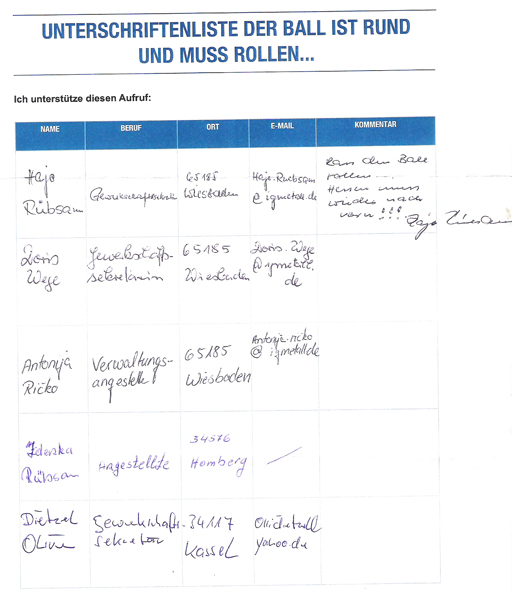 UNTERSCHRIFTENLISTE DER BALL IST RUND
UND MUSS ROLLEN...
Ich unterstütze diesen Aufruf:
NAME BERUF ORT E-MAIL KOMMENTAR
Hajo
Rübsam
65185
Wiesbaden
Hajo.Ruebsam
@igmetall.de
Lass den Ball
rollen...
Hessen muss
wieder nach
vorn!!!
Doris
Wege
Gewerkschafts-
sekretärin
65185
Wiesbaden
Doris.Wege
@igmetall.
de
Antonija
Ričko
Verwaltungs-
angestellte
65185
Wiesbaden
Antonija.ricko
@igmetall.de
Zdenka
Rübsam
Angestellte
34576
Homberg
Dietzel
Oliver
Gewerkschafts-
Sekretär
34117
Kassel
yahoo.de